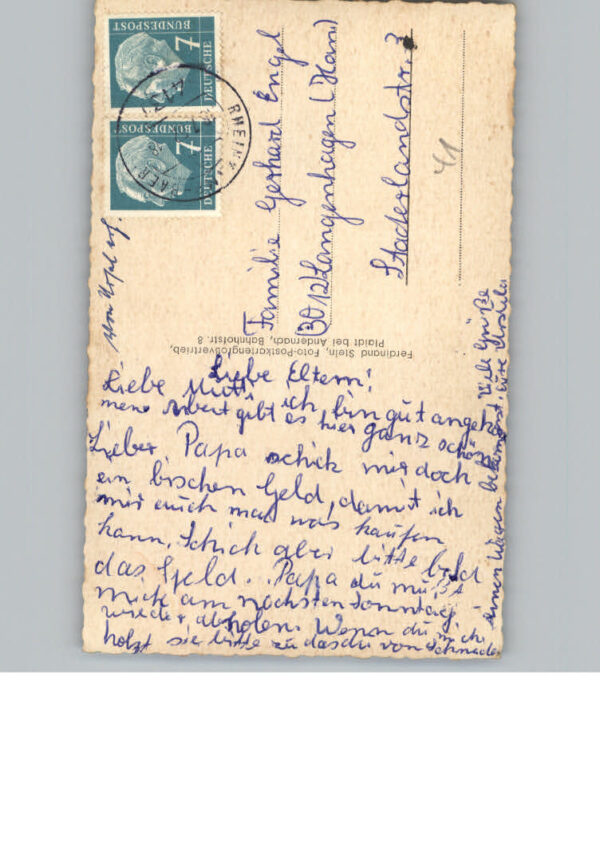 7
DEUTSCHE
BUNDESPOST
7
DEUTSCHE
BUNDESPOST
RHEIN
Familie Gerhard Engel
(3012) Langenhagen (Han)
Staderlandstr. 3
41
Ferdinand Stein, Foto-Postkartengroßvertrieb,
Plaidt bei Andernach, Bahnhofstr. 8
Liebe Eltern!
Liebe Mutti ich bin gut angek
mene gibt es hier ganz schön
Lieber Papa schick mir doch
ein bischen Geld, damit ich
mir auch mal was kaufen
kann, Schick aber bitte bald
das Geld. Papa du mußt
mich am nächsten Sonntag
wieder abholen. Wenn du mich
holst sie bitte zu dasdu von Schneider
einen Wagen bekommst.
Viele Grüße
eure